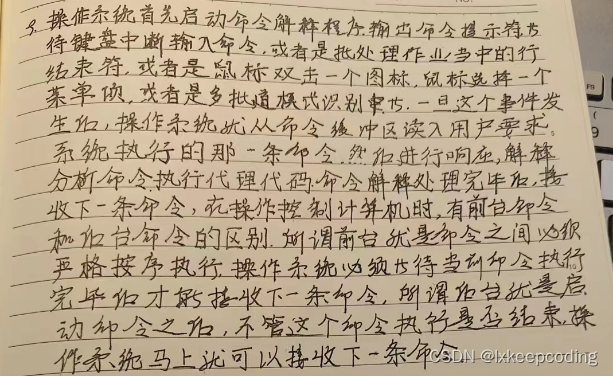 3. 操作系统首先启动命令解释程序输出命令提示符等
待键盘中断输入命令,或者是批处理作业当中的行
结束符,或者是鼠标双击一个图标,鼠标选择一个
菜单项,或者是多批道模式识别事件,一旦这个事件发
生后,操作系统就从命令缓冲区读入用户要求。
系统执行的那一条命令.然后进行响应,解释
分析命令.执行代理代码.命令解释处理完毕后,接
收下一条命令,在操作控制计算机时,有前台命令
和后台命令的区别.所谓前台就是命令之间必须
严格按序执行.操作系统必须等待当前命令执行
完毕后才能接收下一条命令,所谓后台就是启
动命令之后,不管这个命令执行是否结束,操
作系统马上就可以接收下一条命令.
CSDN @lxkeepcoding